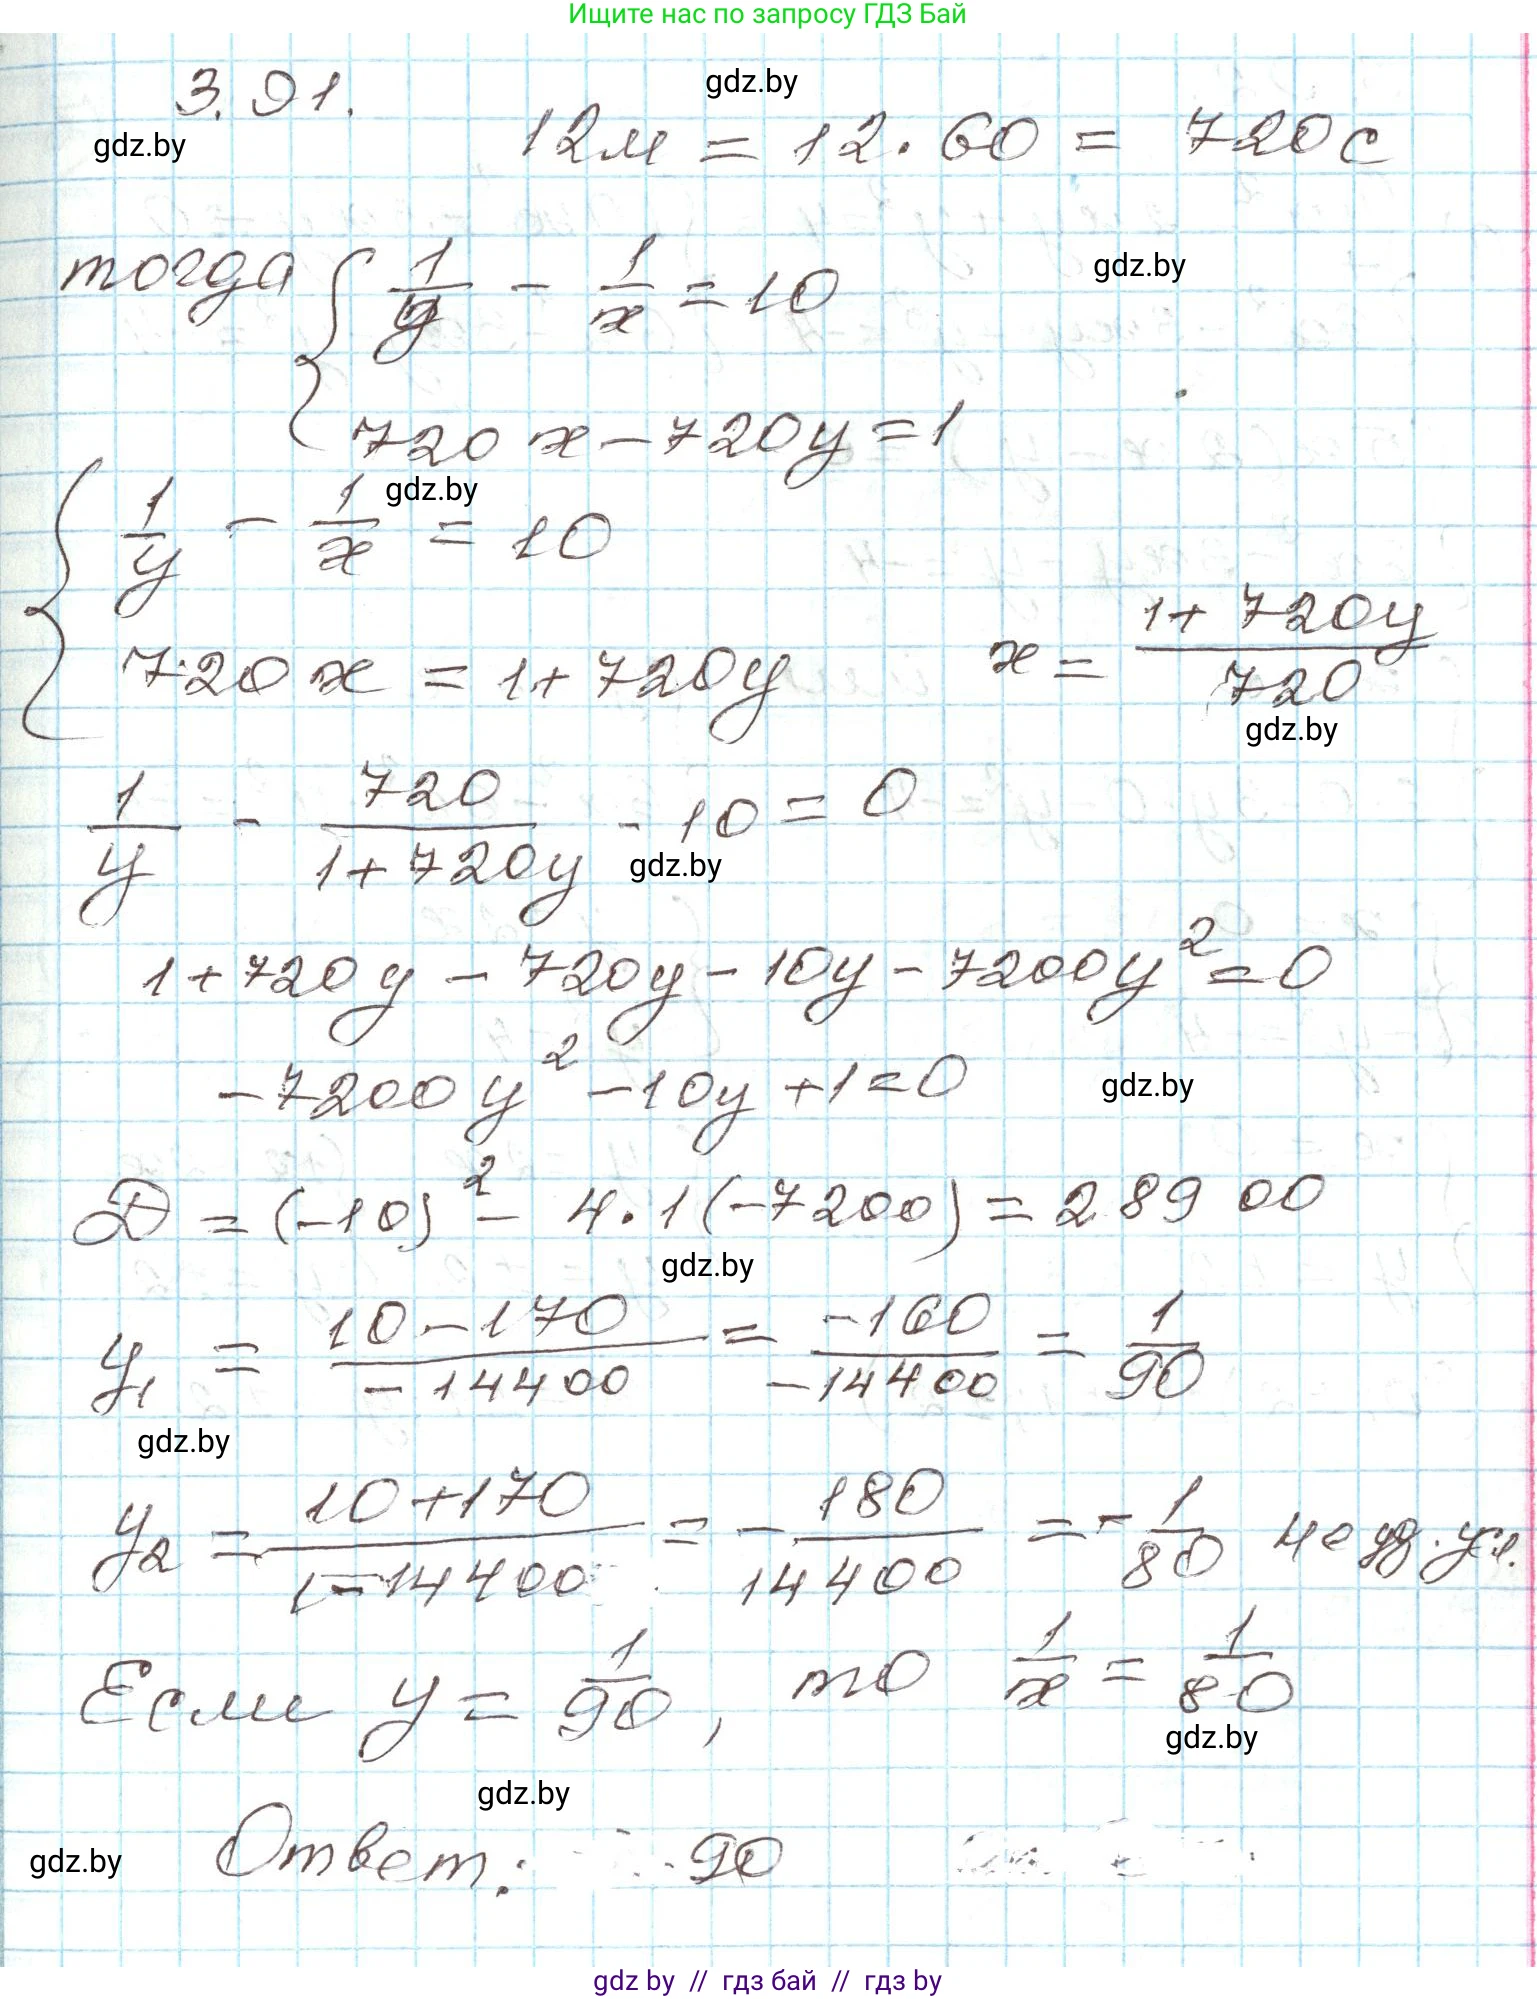 Ищите нас по запросу ГДЗ Бай
3.91.
gdz.by
gdz.by
12м = 12 · 60 = 720 с
тогда { 1/y - 1/x = 10
gdz.by
720x - 720y = 1
gdz.by
{ 1/y - 1/x = 10
720x = 1 + 720y    x = (1 + 720y)/720
gdz.by
1/y - 720/(1 + 720y) - 10 = 0
gdz.by
1 + 720y - 720y - 10y - 7200y² = 0
-7200y² - 10y + 1 = 0
gdz.by
D = (-10)² - 4 · 1(-7200) = 28900
gdz.by
y₁ = (10 - 170)/(-14400) = (-160)/(-14400) = 1/90
gdz.by
y₂ = (10 + 170)/(-14400) = - 180/14400 = - 1/80 не уд. ул.
Если y = 1/90, то 1/x = 1/80
gdz.by
gdz.by
gdz.by
Ответ: 90
gdz by // гдз бай // гдз by